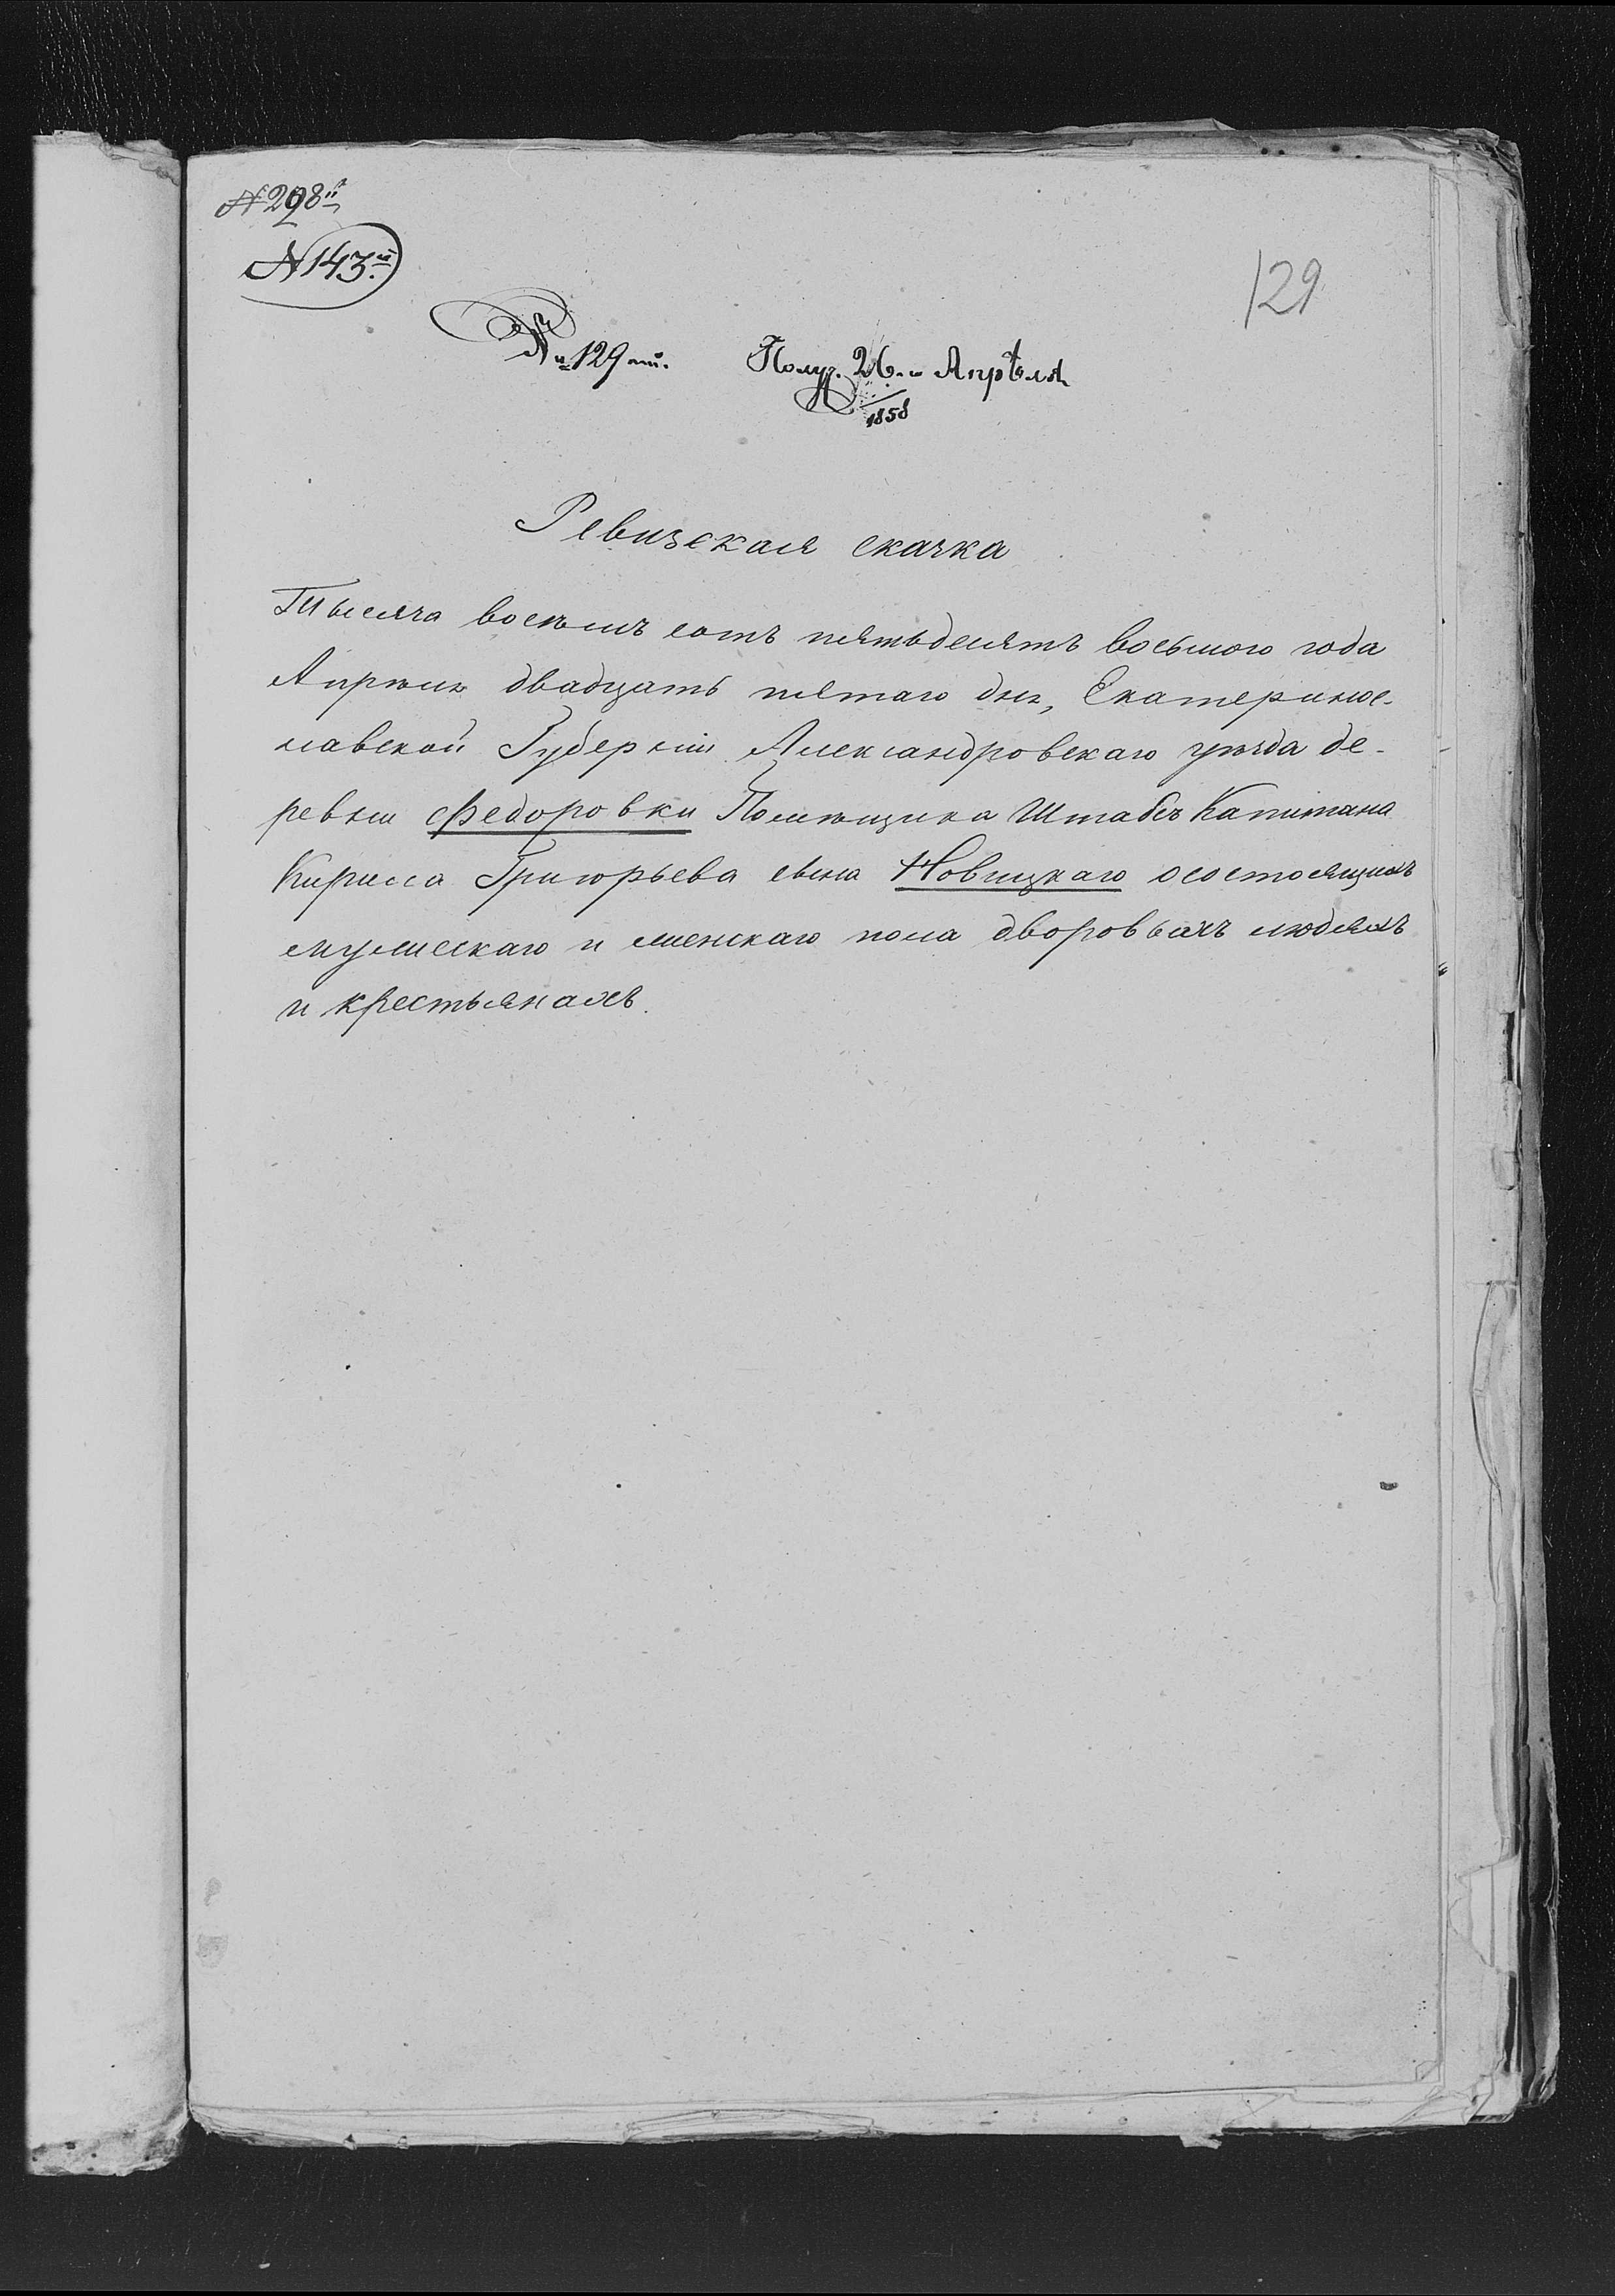 № 298й
№ 143й
129
№ 129й. Получ. 26го Апрѣля
1858
Ревизская скаска
Тысяча восемь сотъ пятьдесятъ восьмого года
Апрѣля двадцать пятаго дня, Екатеринос-
лавской Губерніи Александровскаго уѣзда де-
ревни Федоровки Помѣщика Штабсъ Капитана
Кирилла Григорьева сына Новицкаго о состоящихъ
мужескаго и женскаго пола дворовыхъ людяхъ
и крестьянахъ.